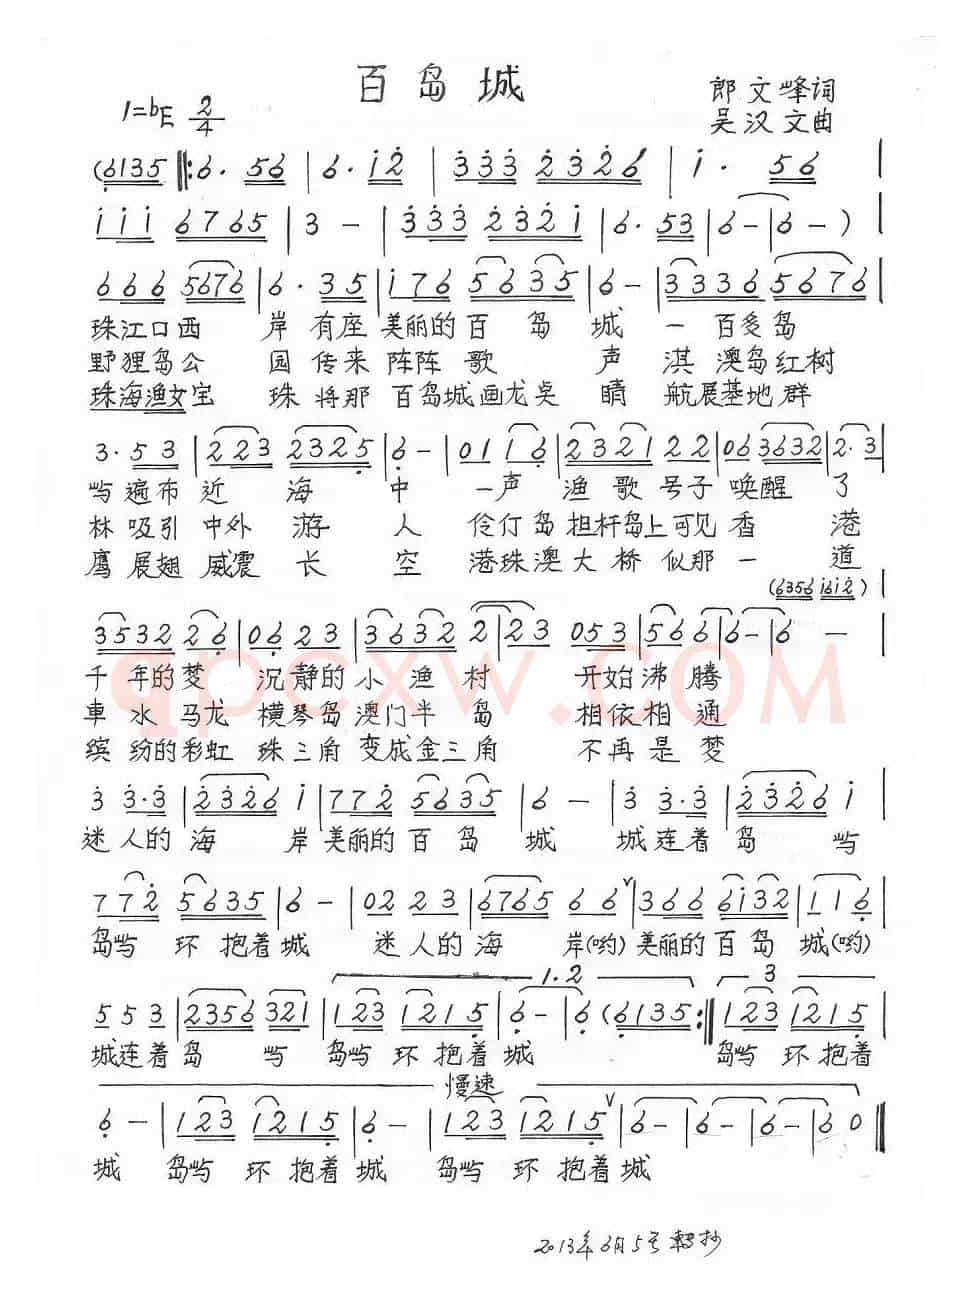 百岛城
郎文峰词
1=bE 2/4
吴汉文曲
(6135 ‖: 6· 56 | 6· 12 | 333 2326 | 1· 56 |
111 6765 | 3 - | 333 2321 | 6· 53 | 6 - | 6 - )
666 5676 | 6· 35 | 176 5635 | 6 - | 3336 5676 |
珠江口西 岸 有座 美丽的百 岛 城 一 百多岛
野狸岛公 园 传来 阵阵 歌 声 淇 澳岛红树
珠海渔女宝 珠 将那 百岛城画龙点 睛 航展基地群
3· 53 | 223 2325 | 6 - | 01 16 | 2321 22 | 06 3632 | 2· 3
屿 遍布 近 海 中 一声 渔 歌 号子 唤醒 了
林 吸引 中外 游 人 伶仃岛 担杆岛上可见 香 港
鹰 展翅 威震 长 空 港珠澳大 桥 似那 一 道
(6356 1612)
3532 26 | 06 23 | 3632 2 | 23 053 | 566 | 6 - | 6 -
千 年的梦 沉静的 小 渔 村 开始 沸 腾
車 水 马龙 横琴岛 澳门半 岛 相依相 通
缤 纷的彩虹 珠三角 变成金三角 不再是 梦
qpcxw.com
3 3·3 | 2326 1 | 772 5635 | 6 - | 3 3·3 | 2326 1 |
迷 人的 海 岸 美丽的百 岛 城 城连着 岛 屿
772 5635 | 6 - | 02 23 | 6765 66 ∨ | 366 6132 | 116
岛屿 环 抱着 城 迷 人的 海 岸(哟) 美丽的百岛 城(哟)
1.2 3
553 | 2356 321 | 123 1215 | 6 - | 6 (6135 :‖ 123 1215 |
城连着岛 屿 岛屿 环 抱着 城 岛屿 环 抱着
慢速
6 - | 123 1215 | 6 - | 123 1215 ∨ | 6 - | 6 - | 6 - | 6 0 ‖
城 岛屿 环 抱着 城 岛屿 环 抱着 城
2013年6月5号 抄